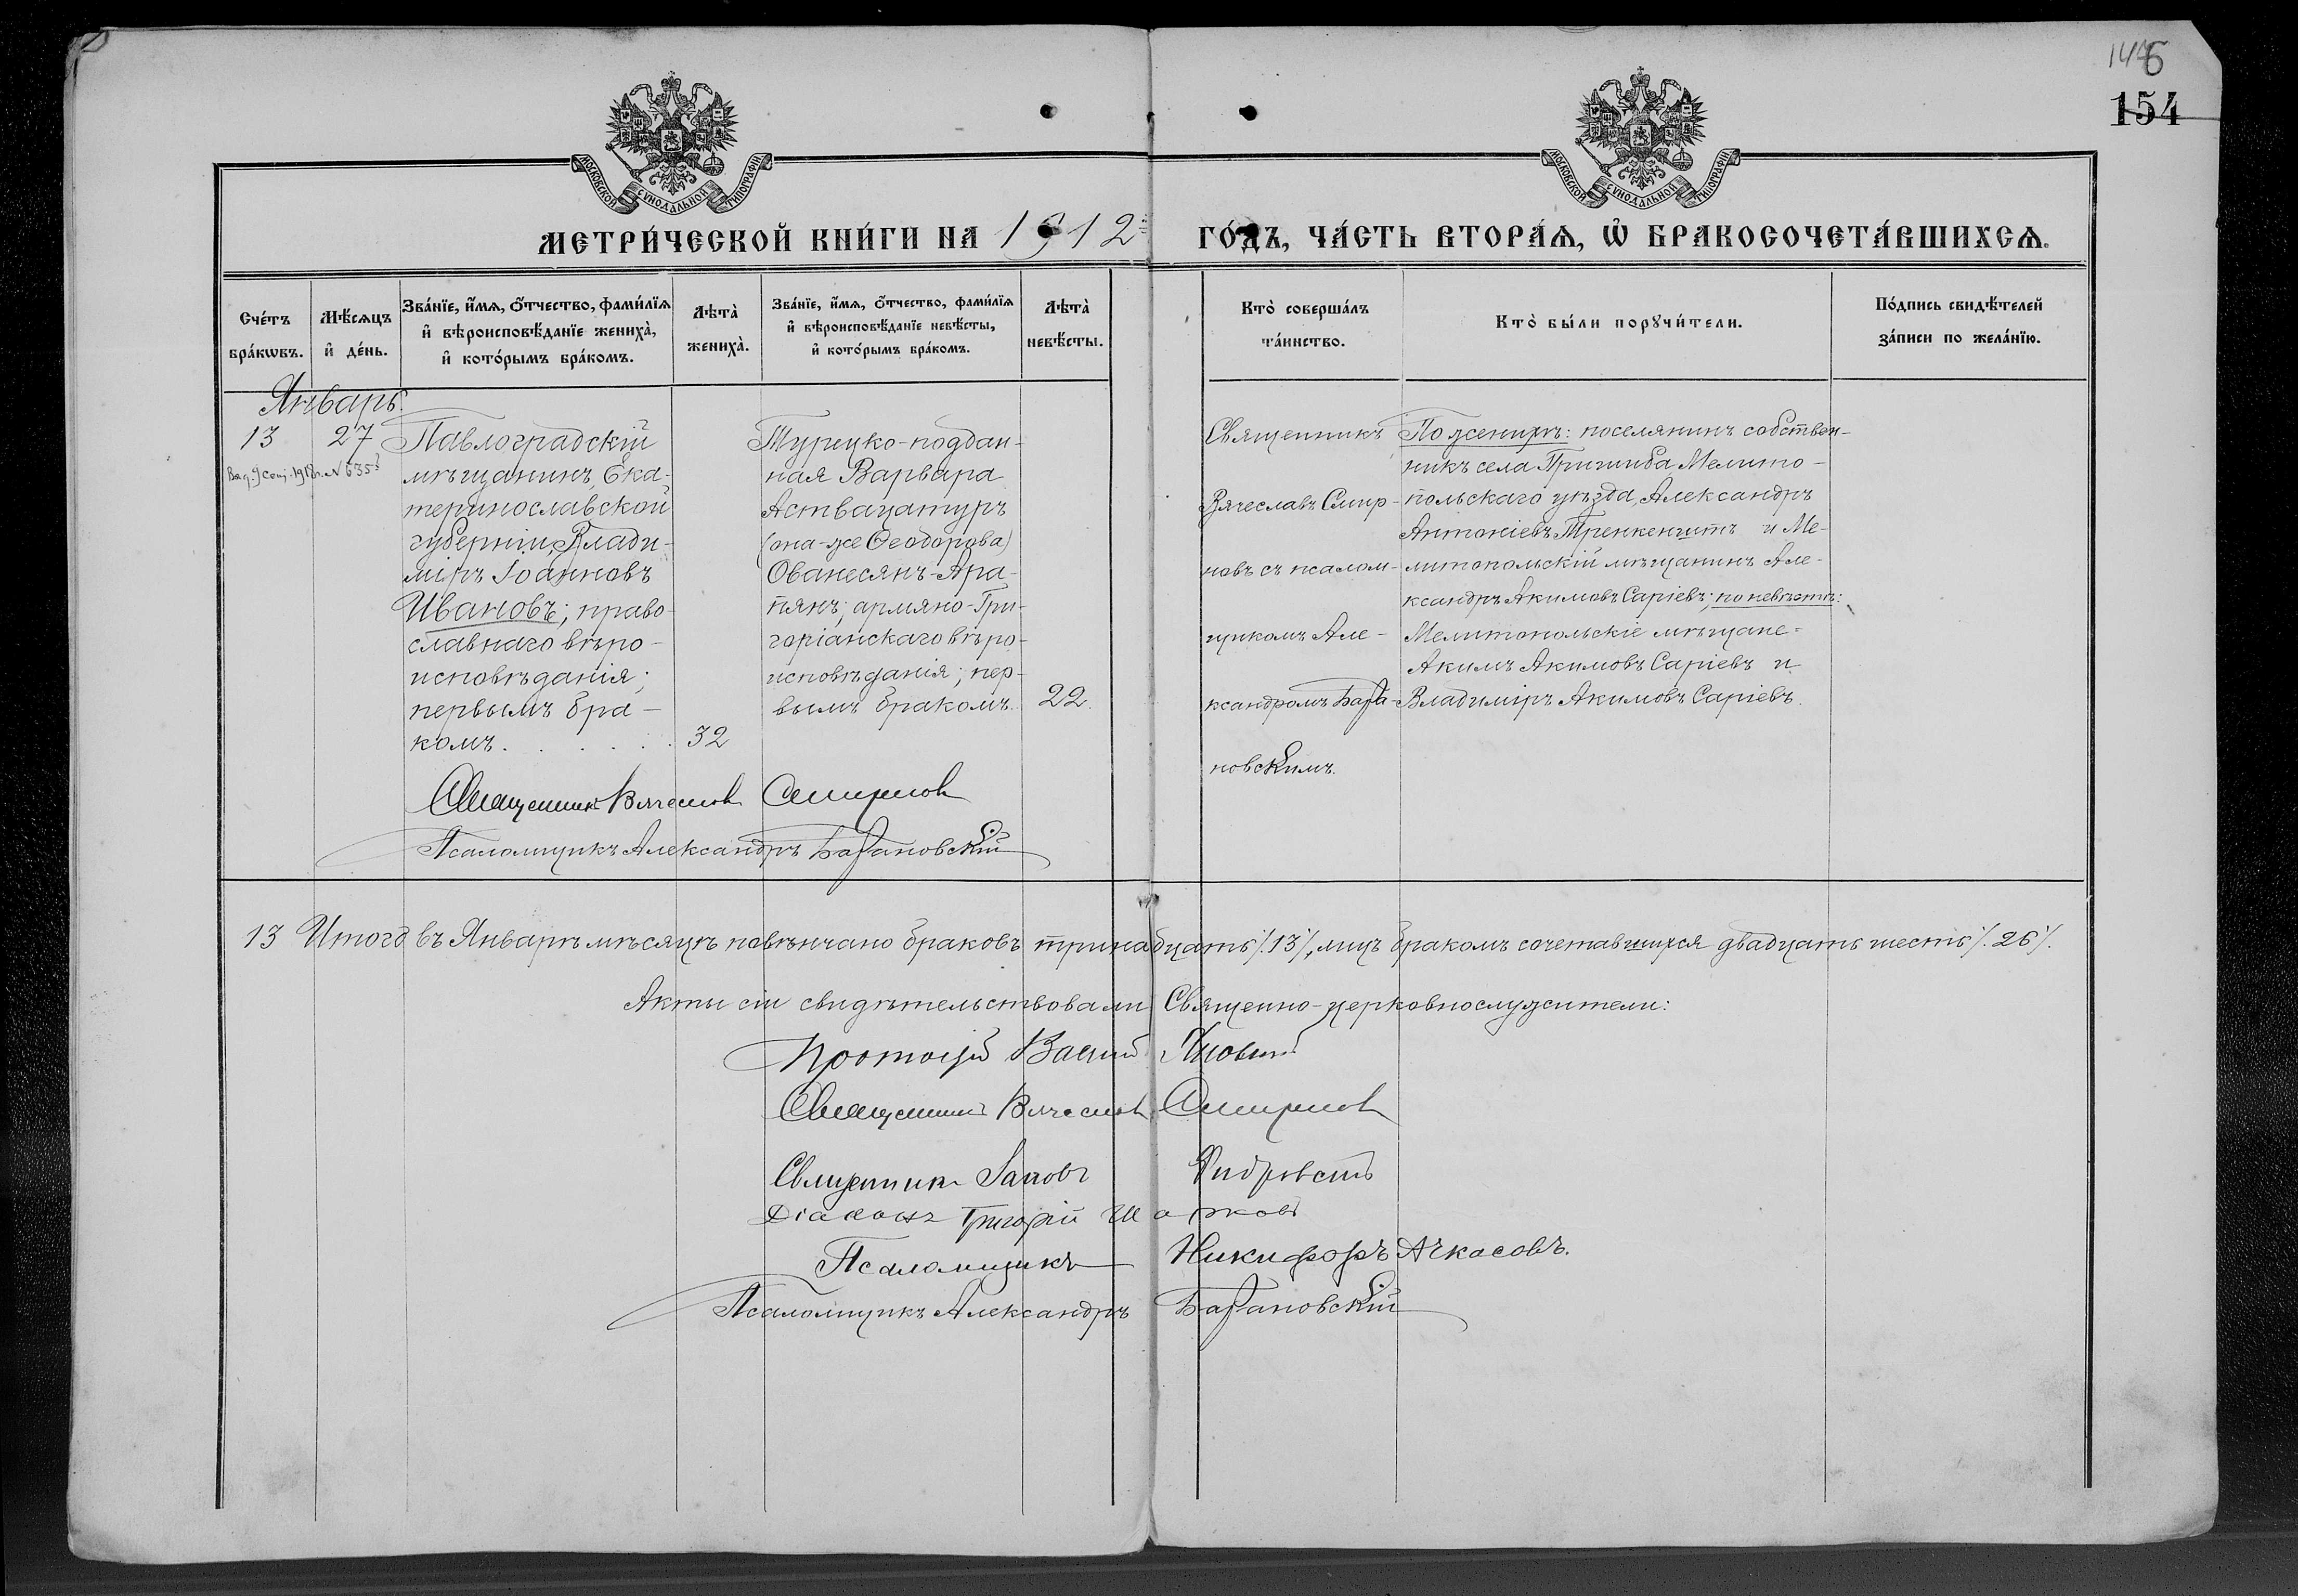 154
МОСКОВСКОЙ СѴНОДАЛЬНОЙ ТИПОГРАФІИ
МОСКОВСКОЙ СѴНОДАЛЬНОЙ ТИПОГРАФІИ
МЕТРИ́ЧЕСКОЙ КНИ́ГИ НА 1912 ГО́ДЪ, ЧА́СТЬ ВТОРА́Ѧ, Ѽ БРАКОСОЧЕТА́ВШИХСѦ.
Сче́тъ бра́кѡвъ.
Мѣ́сѧцъ и҆ де́нь.
Зва́нїе, и҆́мѧ, ѻ҆́тчество, фами́лїѧ
и҆ вѣроисповѣ́данїе жениха̀,
и҆ кото́рымъ бра́комъ.
Лѣта̀ жениха̀.
Зва́нїе, и҆́мѧ, ѻ҆́тчество, фами́лїѧ
и҆ вѣроисповѣ́данїе невѣ́сты,
и҆ кото́рымъ бра́комъ.
Лѣта̀ невѣ́сты.
Кто̀ соверша́лъ та́инство.
Кто̀ бы́ли порꙋчи́тели.
По́дпись свидѣ́телей за́писи по жела́нїю.
Январь.
13
27
Павлоградскій
мѣщанинъ, Ека-
теринославской
губерніи, Влади-
міръ Іоанновъ
Ивановъ; право-
славнаго вѣро-
исповѣданія;
первымъ бра-
комъ . . . . . . 32
Турецко-поддан-
ная Варвара
Аствацатуръ
(она-же Ѳеодорова)
Ованесянъ-Ара-
пянъ; армяно-Гри-
горіанскаго вѣро-
исповѣданія; пер-
вымъ бракомъ. 22.
Священникъ
Вячеславъ Смир-
новъ съ псалом-
щикомъ Але-
ксандромъ Бара-
новскимъ.
По женихѣ: поселянинъ собствен-
никъ села Пришиба Мелито-
польскаго уѣзда, Александръ
Антоніевъ Тренкеншитъ и Ме-
литопольскій мѣщанинъ Але-
ксандръ Акимовъ Саріевъ; по невѣстѣ:
Мелитопольскіе мѣщане-
Акимъ Акимовъ Саріевъ и
Владиміръ Акимовъ Саріевъ.
Священникъ Вячеславъ Смирнов
Псаломщикъ Александръ Барановскій
13 Итого въ Январѣ мѣсяцѣ повѣнчано браковъ тринадцать /.13/., лицъ бракомъ сочетавшихся двадцать шесть /.26/.
Акты сіи свидѣтельствовали Священно-церковнослужители:
Священникъ Вячеславъ Смирнов
Священникъ Іаковъ
Діаконъ Григорій
Псаломщикъ Никифоръ Ачкасовъ.
Псаломщикъ Александръ Барановскій